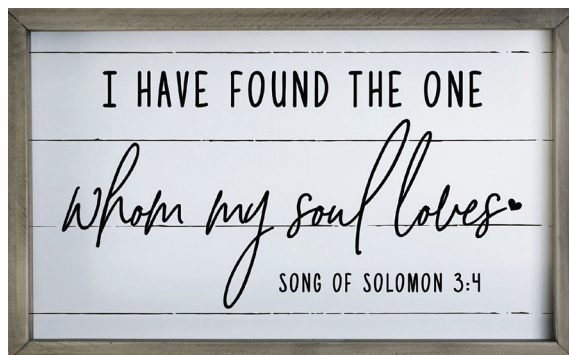 I HAVE FOUND THE ONE
whom my soul loves
SONG OF SOLOMON 3:4